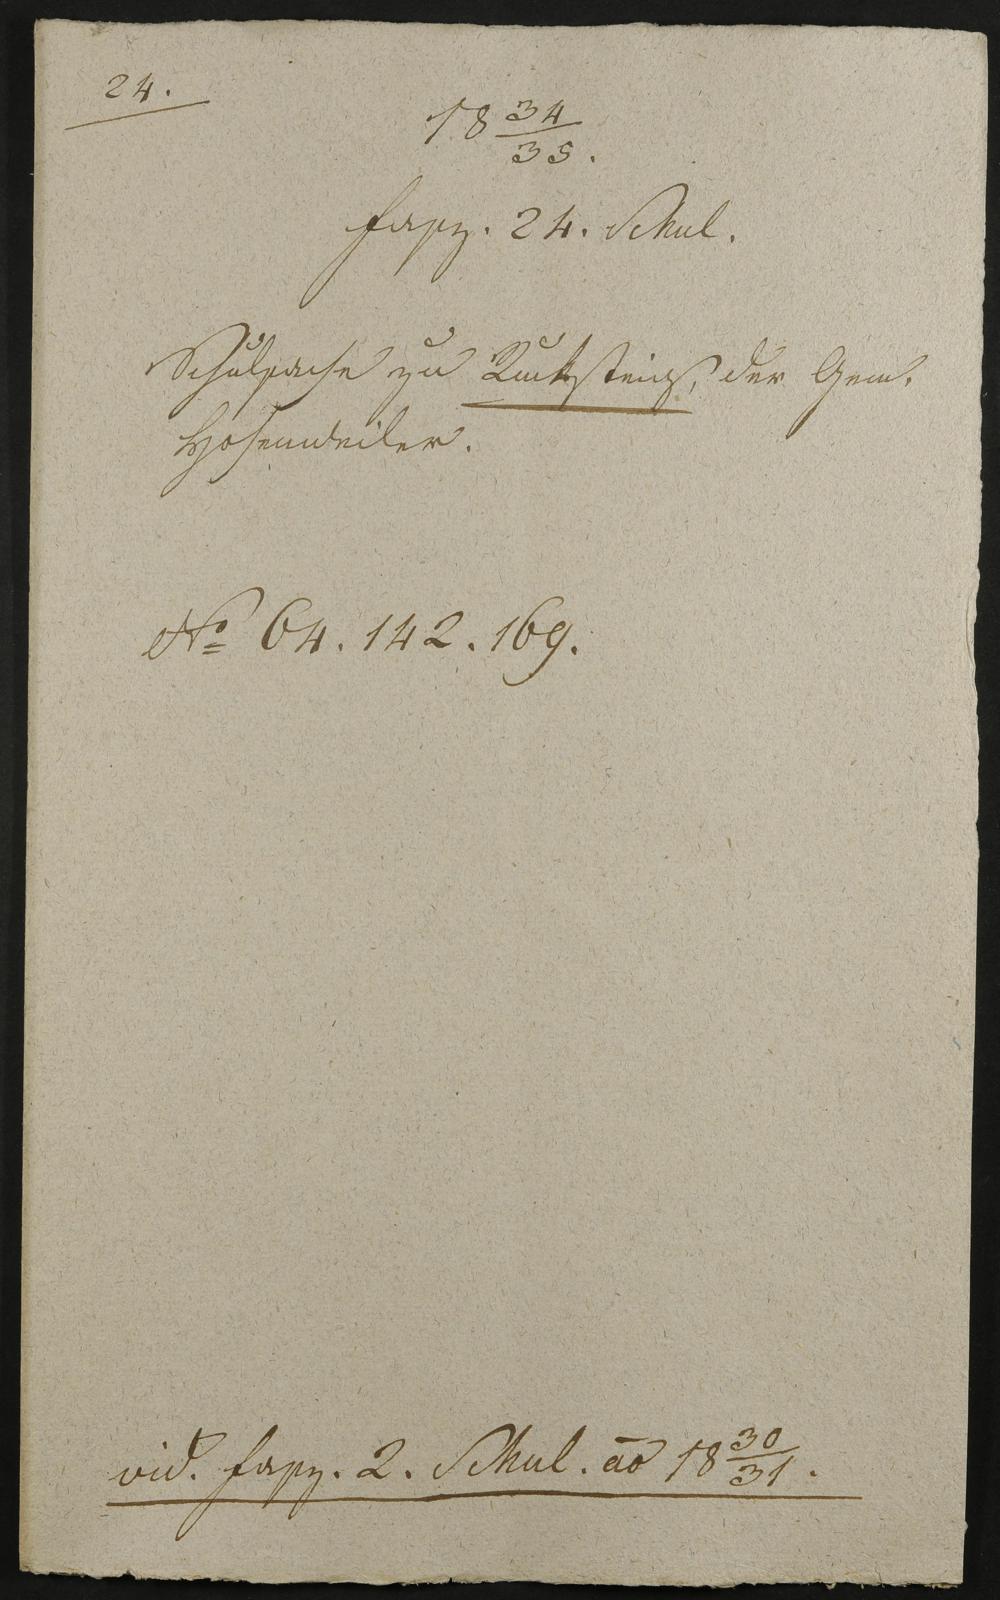 24.
18 34/35.
Fasz. 24. Schul.
Schulsache zu Rucksteig, der Gem.
Hohenweiler.
No 64. 142. 169.
vid. Fasz. 2. Schul. ao 18 30/31.